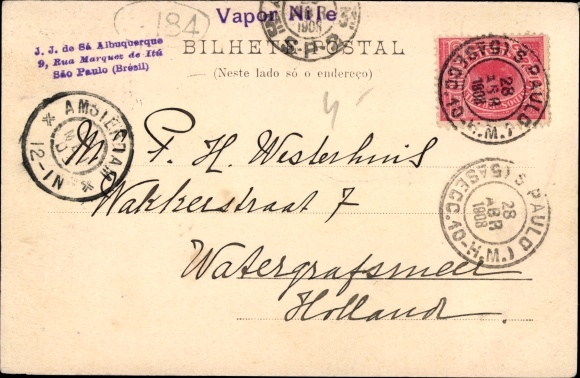 184
Vapor Nile
J. J. de Sá Albuquerque
9, Rua Marquez de Itú
São Paulo (Brésil)
BILHETE POSTAL
(Neste lado só o endereço)
1908
S. PAULO
(5ASECC.10-H.M.)
28
ABR
1908
AMSTERDAM
12-1N
M F. H. Westerhuis
Wakkerstraat 7
Watergrafsmeer
Holland
S. PAULO
(5ASECC.10-H.M.)
28
ABR
1908